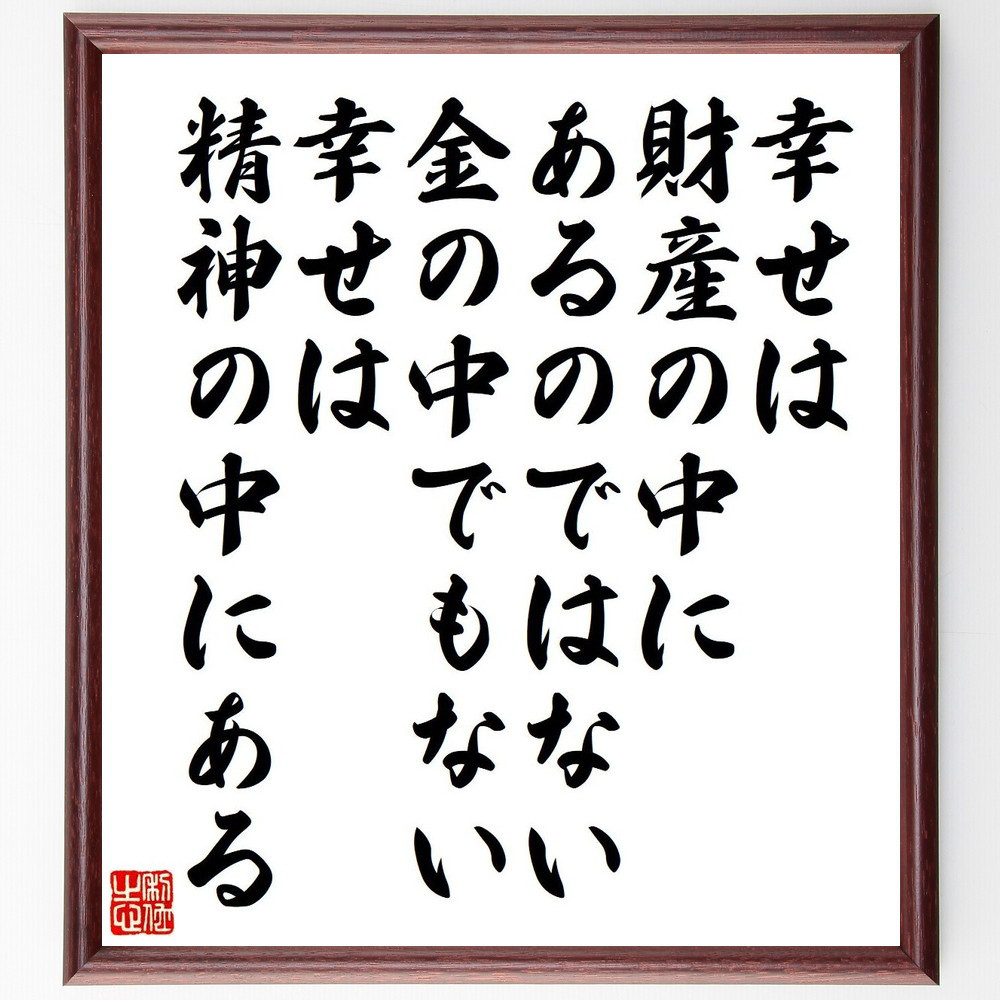 幸せは
財産の中に
あるのではない
金の中でもない
幸せは
精神の中にある